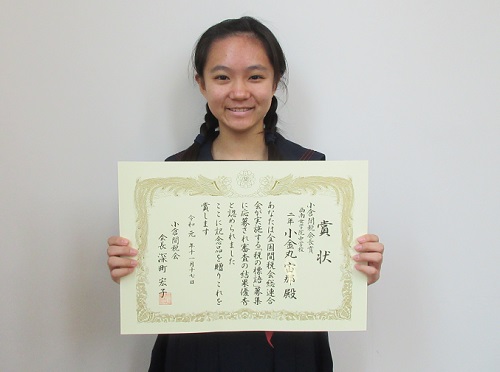 賞状
小倉間税会長賞
西南女学院中学校
二年 小金丸 殿
あなたは全国間税会総連合
会が実施する「税の標語」募集
に応募され審査の結果優秀
と認められました
ここに記念品を贈りこれを
賞します
令和元年十一月十七日
小倉間税会
会長 深町 宏子